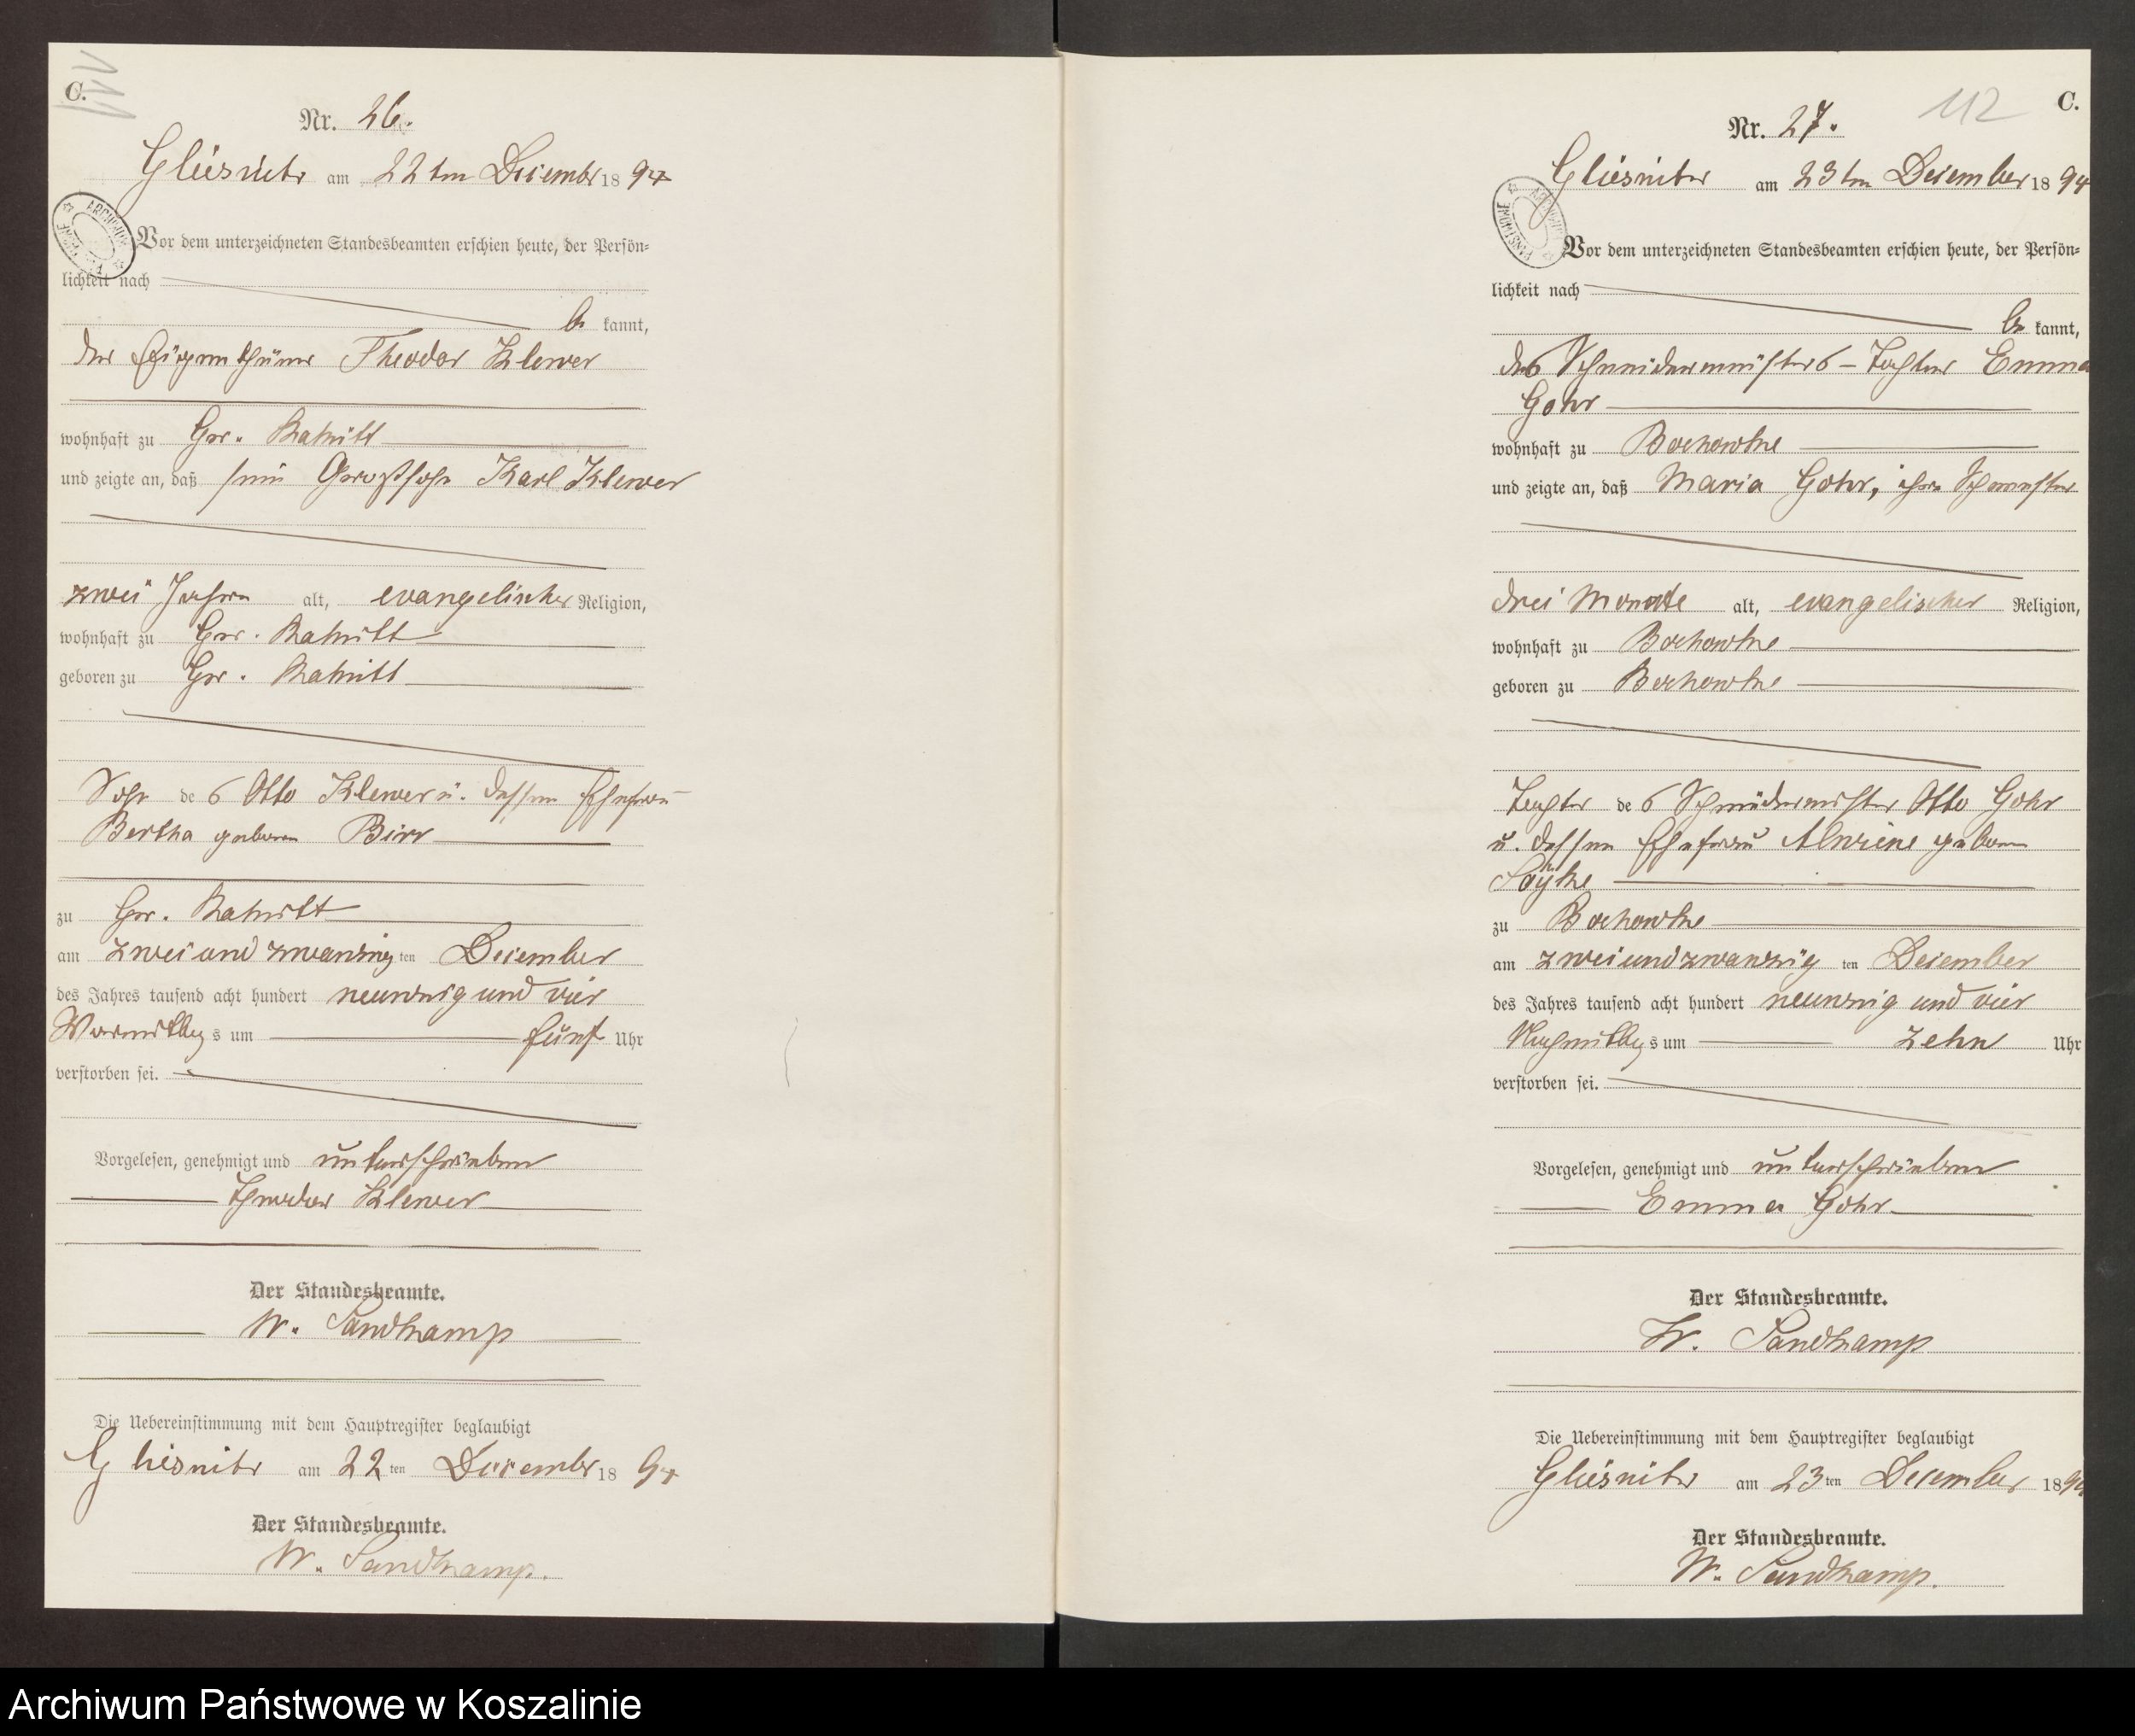 C.
Nr. 26.
Gliesnitz am 22ten Dezember 1894
ARCHIWUM PAŃSTWOWE
Vor dem unterzeichneten Standesbeamten erschien heute, der Persön-
lichkeit nach
be kannt,
der Eigenthümer Theodor Klewer
wohnhaft zu Gr. Rakitt
und zeigte an, daß sein Großsohn Karl Klewer
zwei Jahre alt, evangelischer Religion,
wohnhaft zu Gr. Rakitt
geboren zu Gr. Rakitt
Sohn des Otto Klewer u. dessen Ehefrau
Bertha geboren Birr
zu Gr. Rakitt
am zwei und zwanzigten Dezember
des Jahres tausend acht hundert neunzig und vier
Vormittags um fünf Uhr
verstorben sei.
Vorgelesen, genehmigt und unterschrieben
Theodor Klewer
Der Standesbeamte.
W. Sandkamp
Die Uebereinstimmung mit dem Hauptregister beglaubigt
Gliesnitz am 22ten Dezember 1894
Der Standesbeamte.
W. Sandkamp.
112
C.
Nr. 27.
Gliesnitz am 23ten Dezember 1894
ARCHIWUM PAŃSTWOWE
Vor dem unterzeichneten Standesbeamten erschien heute, der Persön-
lichkeit nach
be kannt,
des Schneidermeisters-Tochter Emma
Gohr
wohnhaft zu Bochowke
und zeigte an, daß Maria Gohr, ihre Schwester
drei Monate alt, evangelischer Religion,
wohnhaft zu Bochowke
geboren zu Bochowke
Tochter des Schneidermeister Otto Gohr
u. dessen Ehefrau Alwine geboren
zu Bochowke
am zweiundzwanzigten Dezember
des Jahres tausend acht hundert neunzig und vier
Nachmittags um zehn Uhr
verstorben sei.
Vorgelesen, genehmigt und unterschrieben
Emma Gohr
Der Standesbeamte.
W. Sandkamp
Die Uebereinstimmung mit dem Hauptregister beglaubigt
Gliesnitz am 23ten Dezember 1894
Der Standesbeamte.
W. Sandkamp.
Archiwum Państwowe w Koszalinie